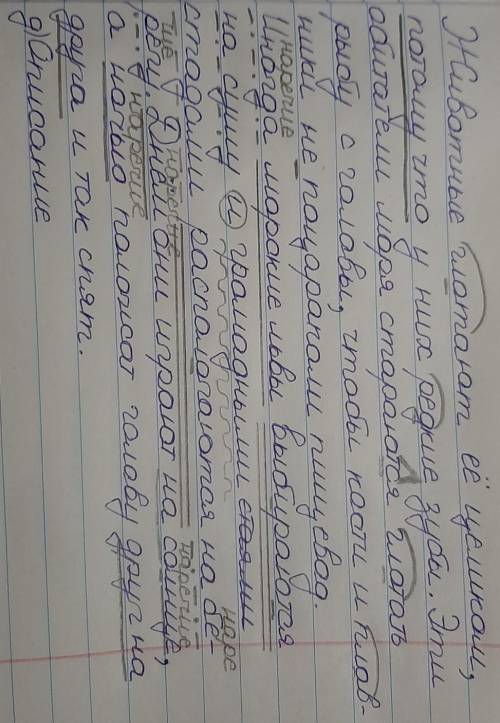 Животные глотают её целиком,
потому что у них редкие зубы. Эти
обитатели моря стараются глотать
рыбу с головы, чтобы кости и плав-
ники не поцарапали пищевод.
наречие
Иногда морские львы выбираются
на сушу и громадными
наре
стадами располагаются на бе-
тие наречие наречие
регу. Днём они играют на солнце,
наречие
а ночью положат голову друг на
друга и так спят.
д) Описание